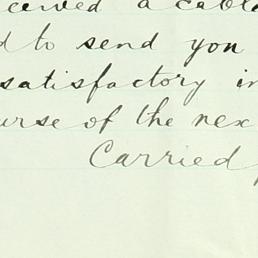 ceived a cabl
d to send you
satisfactory in
urse of the nex
Carried